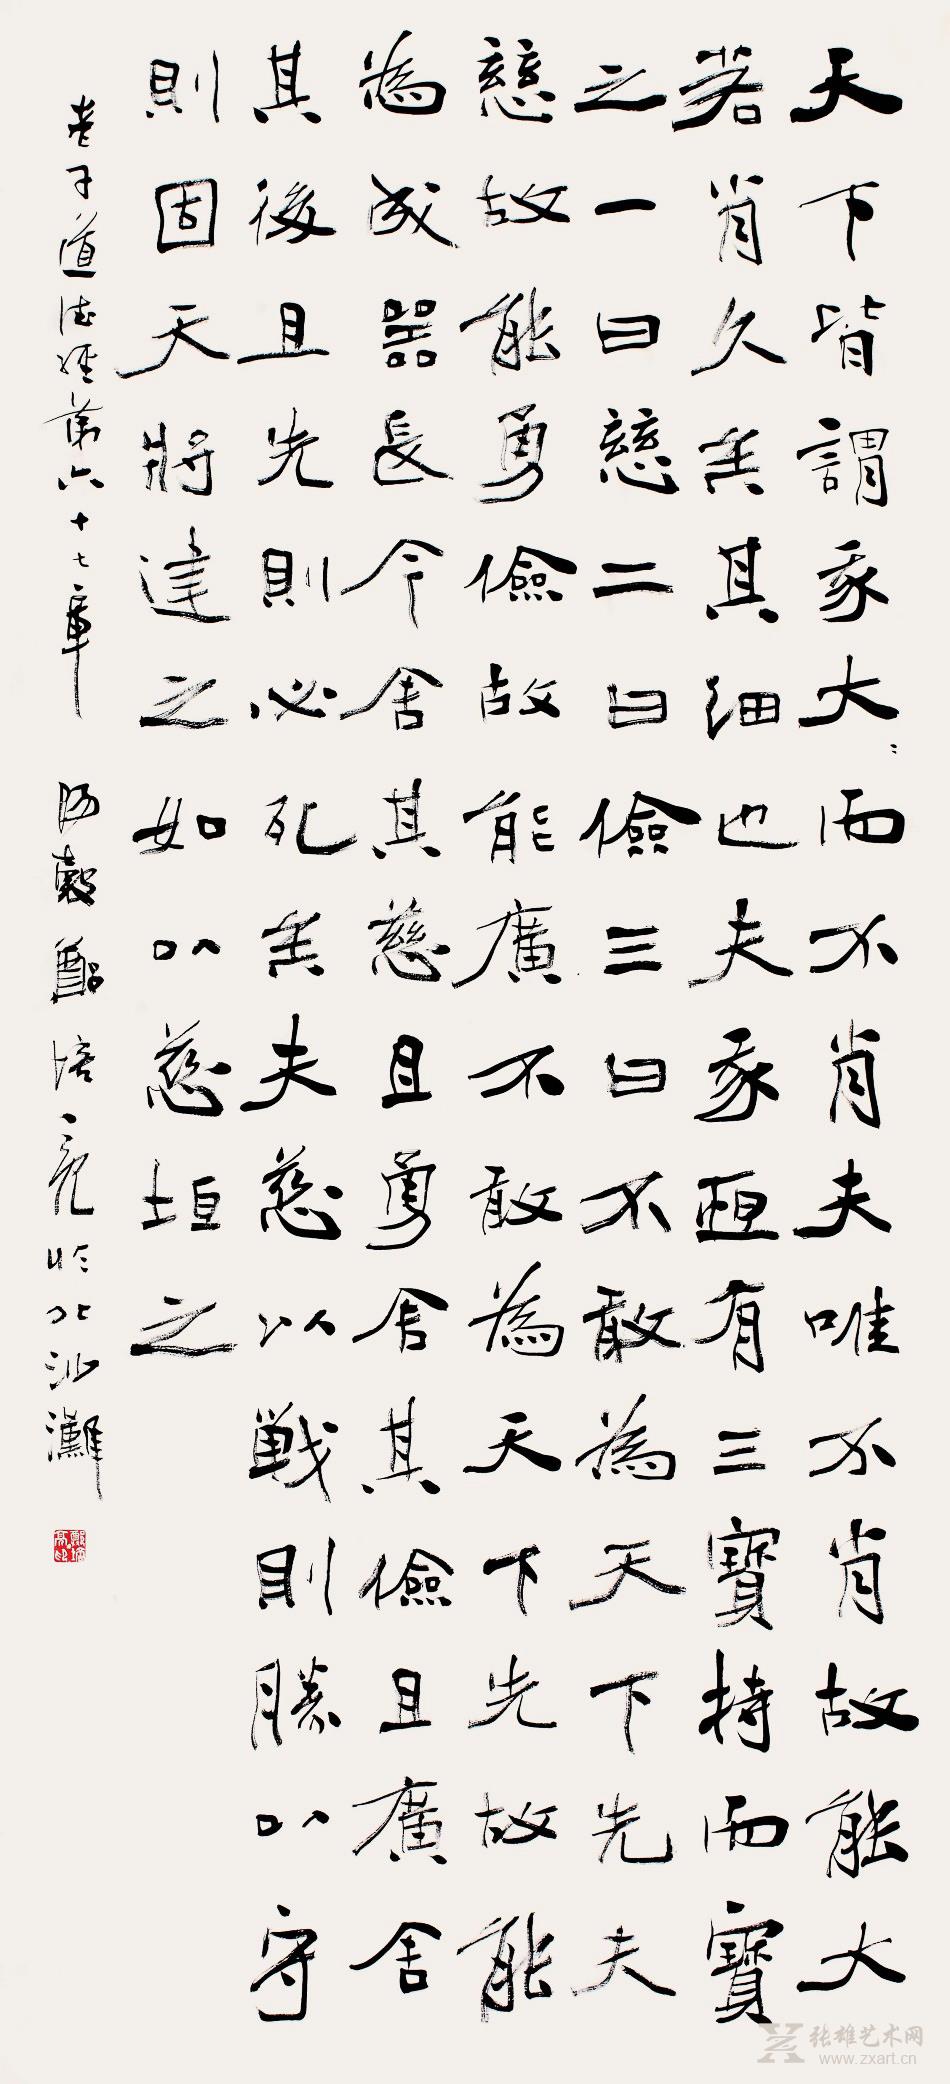 天下皆謂我大=而不肖夫唯不肖故能大
若肖久矣其細也夫我恆有三寶持而寶
之一曰慈二曰儉三曰不敢為天下先夫
慈故能勇儉故能廣不敢為天下先故能
為成器長今舍其慈且勇舍其儉且廣舍
其後且先則必死矣夫慈以戰則勝以守
則固天將建之如以慈垣之
老子道德經第六十七章 陽穀鄭培亮於北沙灘
张雄艺术网
www.zxart.cn